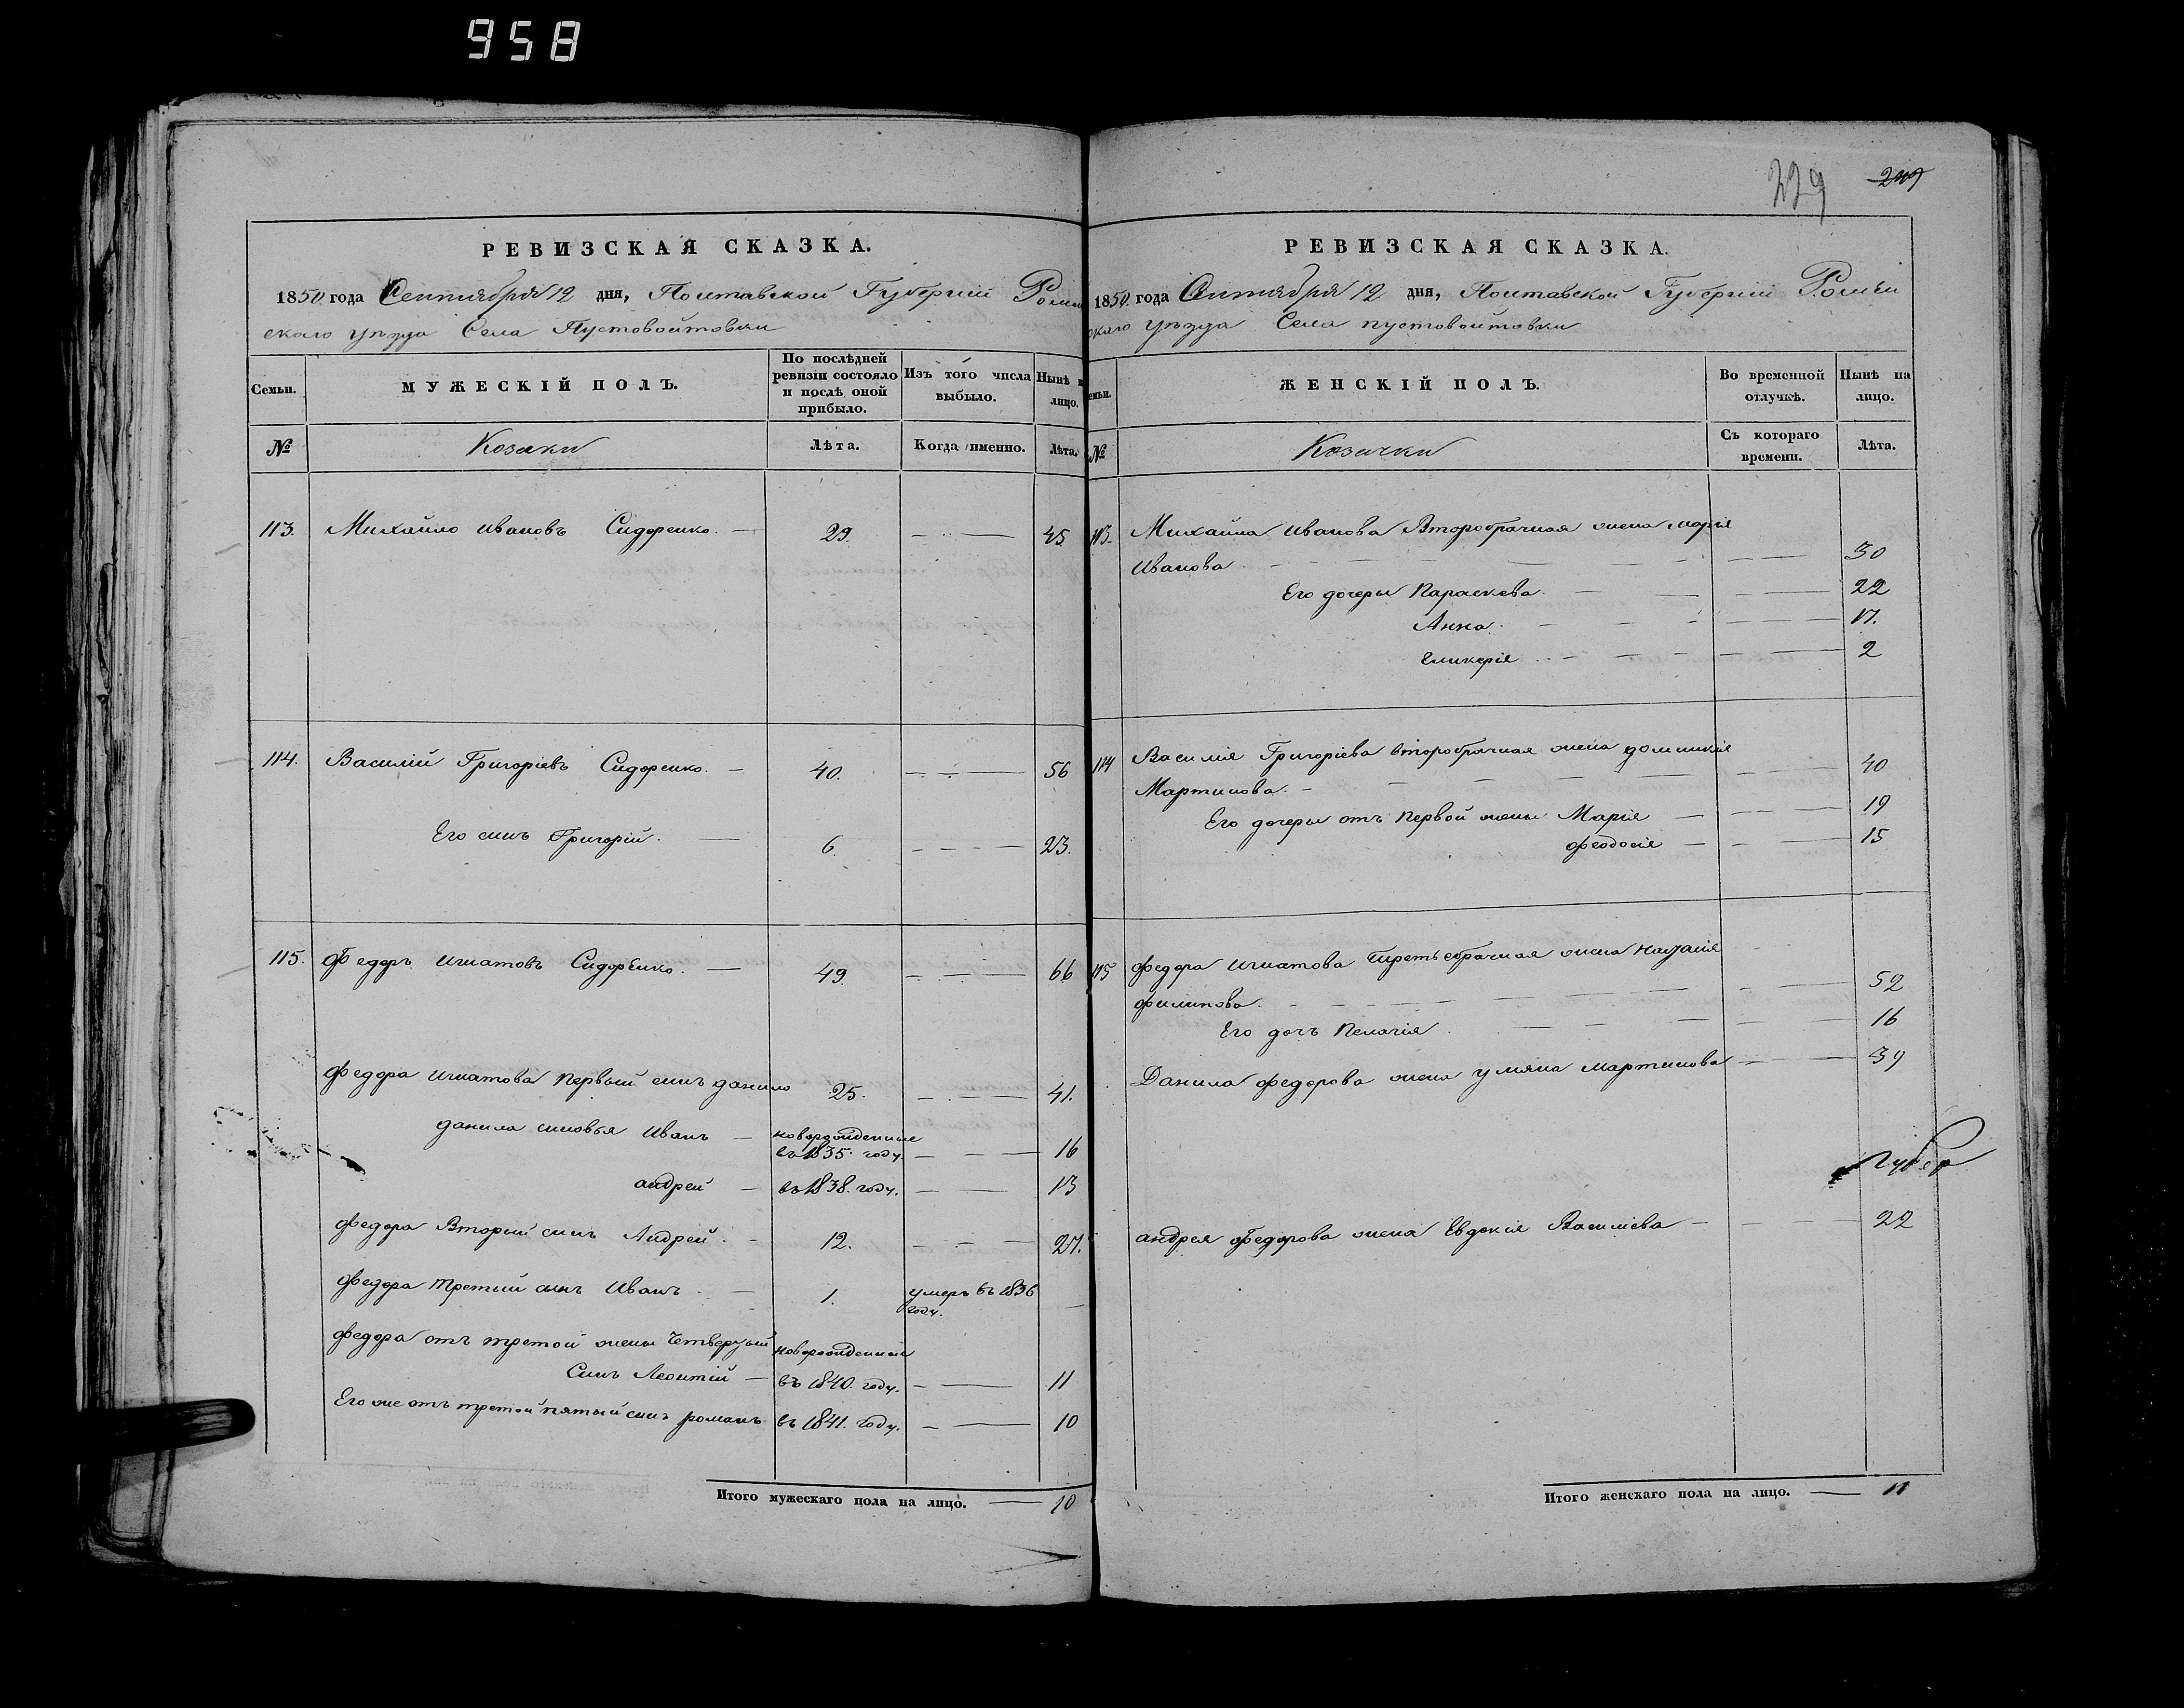 958
229 249
РЕВИЗСКАЯ СКАЗКА.
1850 года Сентября 12 дня, Полтавской Губерніи Ромен
скаго уѣзда Села Пустовойтовки
Семьи. МУЖЕСКІЙ ПОЛЪ. По послѣдней ревизіи состояло и послѣ оной прибыло. Изъ того числа выбыло. Нынѣ н лицо.
№ Козаки Лѣта. Когда именно. Лѣта.
113. Михайло Ивановъ Сидоренко. — 29. 45
114. Василій Григоріевъ Сидоренко. — 40. 56
Его синъ Григорій. 6. 23.
115. Федоръ Игнатовъ Сидоренко. — 49. 66
Федора Игнатова Первый синъ данило 25. 41.
данила синовья Иванъ — новорожденные
въ 1835. году. 16
андрей — въ 1838. году. 13
Федора Вторый синъ Андрей. 12. 27.
Федора третый синъ Иванъ 1. умеръ въ 1836
году.
Федора отъ третой жены Четвертый новорожденные
Синъ Леонтій — въ 1840. году. 11
Его же отъ третой пятый синъ романъ въ 1841. году. 10
Итого мужескаго пола на лицо. — 10
РЕВИЗСКАЯ СКАЗКА.
1850 года Сентября 12 дня, Полтавской Губерніи Ромен
скаго уѣзда Села пустовойтовки
емьи. ЖЕНСКІЙ ПОЛЪ. Во временной отлучкѣ. Нынѣ на лицо.
№ Козачки Съ котораго времени. Лѣта.
113. Михайла Иванова Второбрачная жена марія
Иванова. 30
Его дочеры Параскева. 22
Анна. 17.
Гликерія 2
114 Василія Григоріева второбрачная жена доминикія
Мартинова. 40
Его дочеры отъ первой жены Марія 19
феодосія 15
115 федора Игнатова третьебрачная жена
филипова. 52
Его дочь Пелагія 16
Данила федорова жена уляна мартинова 39
андрея Федорова жена Евдокія Василіева 22
Итого женскаго пола на лицо. — 11